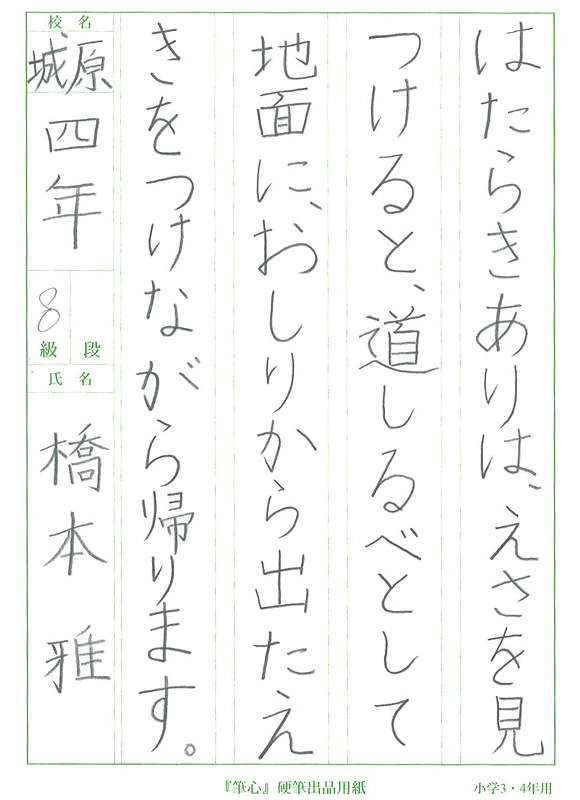 はたらきありは、えさを見
つけると、道しるべとして
地面に、おしりから出たえ
きをつけながら帰ります。
校名
城原
四年
8
級 段
氏名
橋本 雅
『筆心』硬筆出品用紙
小学3・4年用